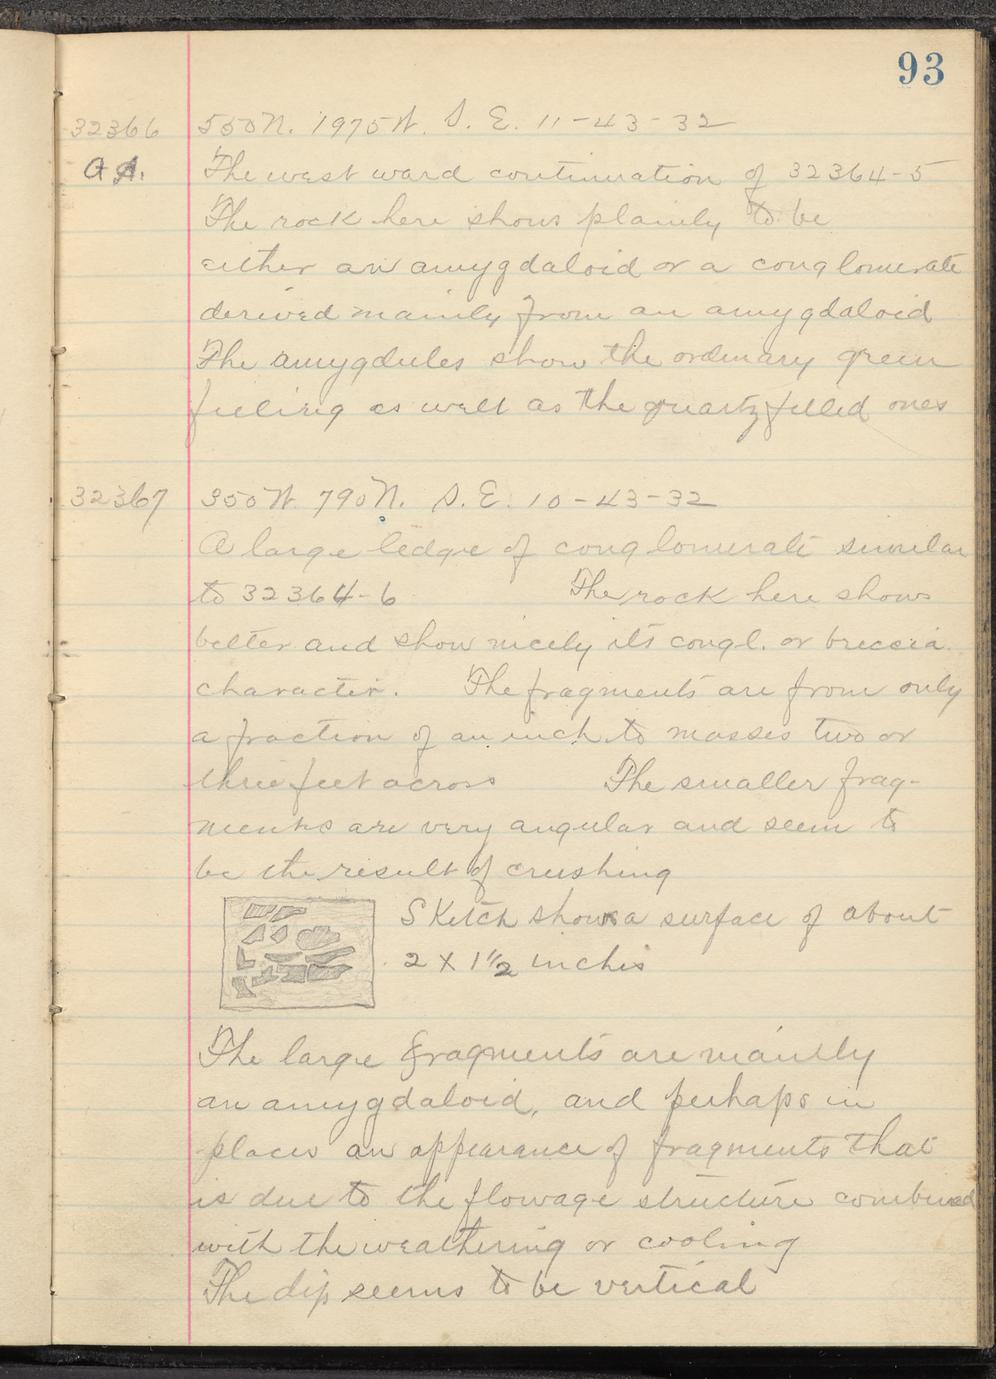 93
32366 550N. 1975W. S. E. 11-43-32
A. The west ward continuation of 32364-5
The rock here shows plainly to be
either an amygdaloid or a conglomerate
derived mainly from an amygdaloid
The amygdules show the ordinary green
feeling as well as the quartz filled ones
32367 350W. 790N. S. E. 10-43-32
A large ledge of conglomerate similar
to 32364-6 The rock here shows
better and show nicely its congl. or breccia
character. The fragments are from only
a fraction of an inch to masses two or
three feet across The smaller frag-
ments are very angular and seem to
be the result of crushing
Sketch shows a surface of about
2 X 1 1/2 inches
The large fragments are mainly
an amygdaloid, and perhaps in
places an appearance of fragments that
is due to the flowage structure combined
with the weathering or cooling
The dip seems to be vertical